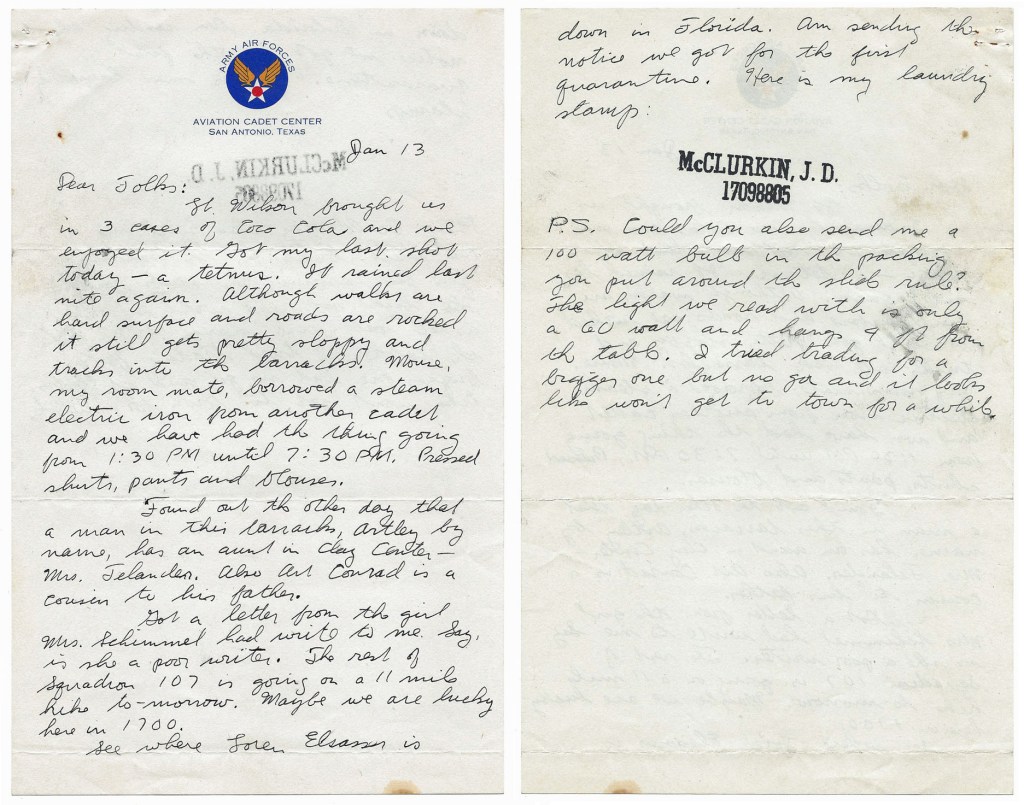 ARMY AIR FORCES
AVIATION CADET CENTER
SAN ANTONIO, TEXAS
Jan 13
McCLURKIN, J. D.
17098805
Dear Folks:
Lt. Wilson brought us
in 3 cases of Coco Cola and we
enjoyed it. Got my last shot
today — a tetnus. It rained last
nite again. Although walks are
hard surface and roads are rocked
it still gets pretty sloppy and
tracks into the barracks. Mouse,
my room mate, borrowed a steam
electric iron from another cadet
and we have had the thing going
from 1:30 PM until 7:30 PM. Pressed
shirts, pants and blouses.
Found out the other day that
a man in this barracks, Artley by
name, has an aunt in Clay Center —
Mrs. Telander. Also Art Conrad is a
cousin to his father.
Got a letter from the girl
Mrs. Schimmel had write to me. Say,
is she a poor writer. The rest of
Squadron 107 is going on a 11 mile
hike to-morrow. Maybe we are lucky
here in 1700.
See where Loren Elsasser is
down in Florida. Am sending the
notice we got for the first
quarantine. Here is my laundry
stamp:
McCLURKIN, J. D.
17098805
P.S. Could you also send me a
100 watt bulb in the packing
you put around the slide rule?
The light we read with is only
a 60 watt and hangs 4 ft from
the table. I tried trading for a
bigger one but no go and it looks
like won't get to town for a while.